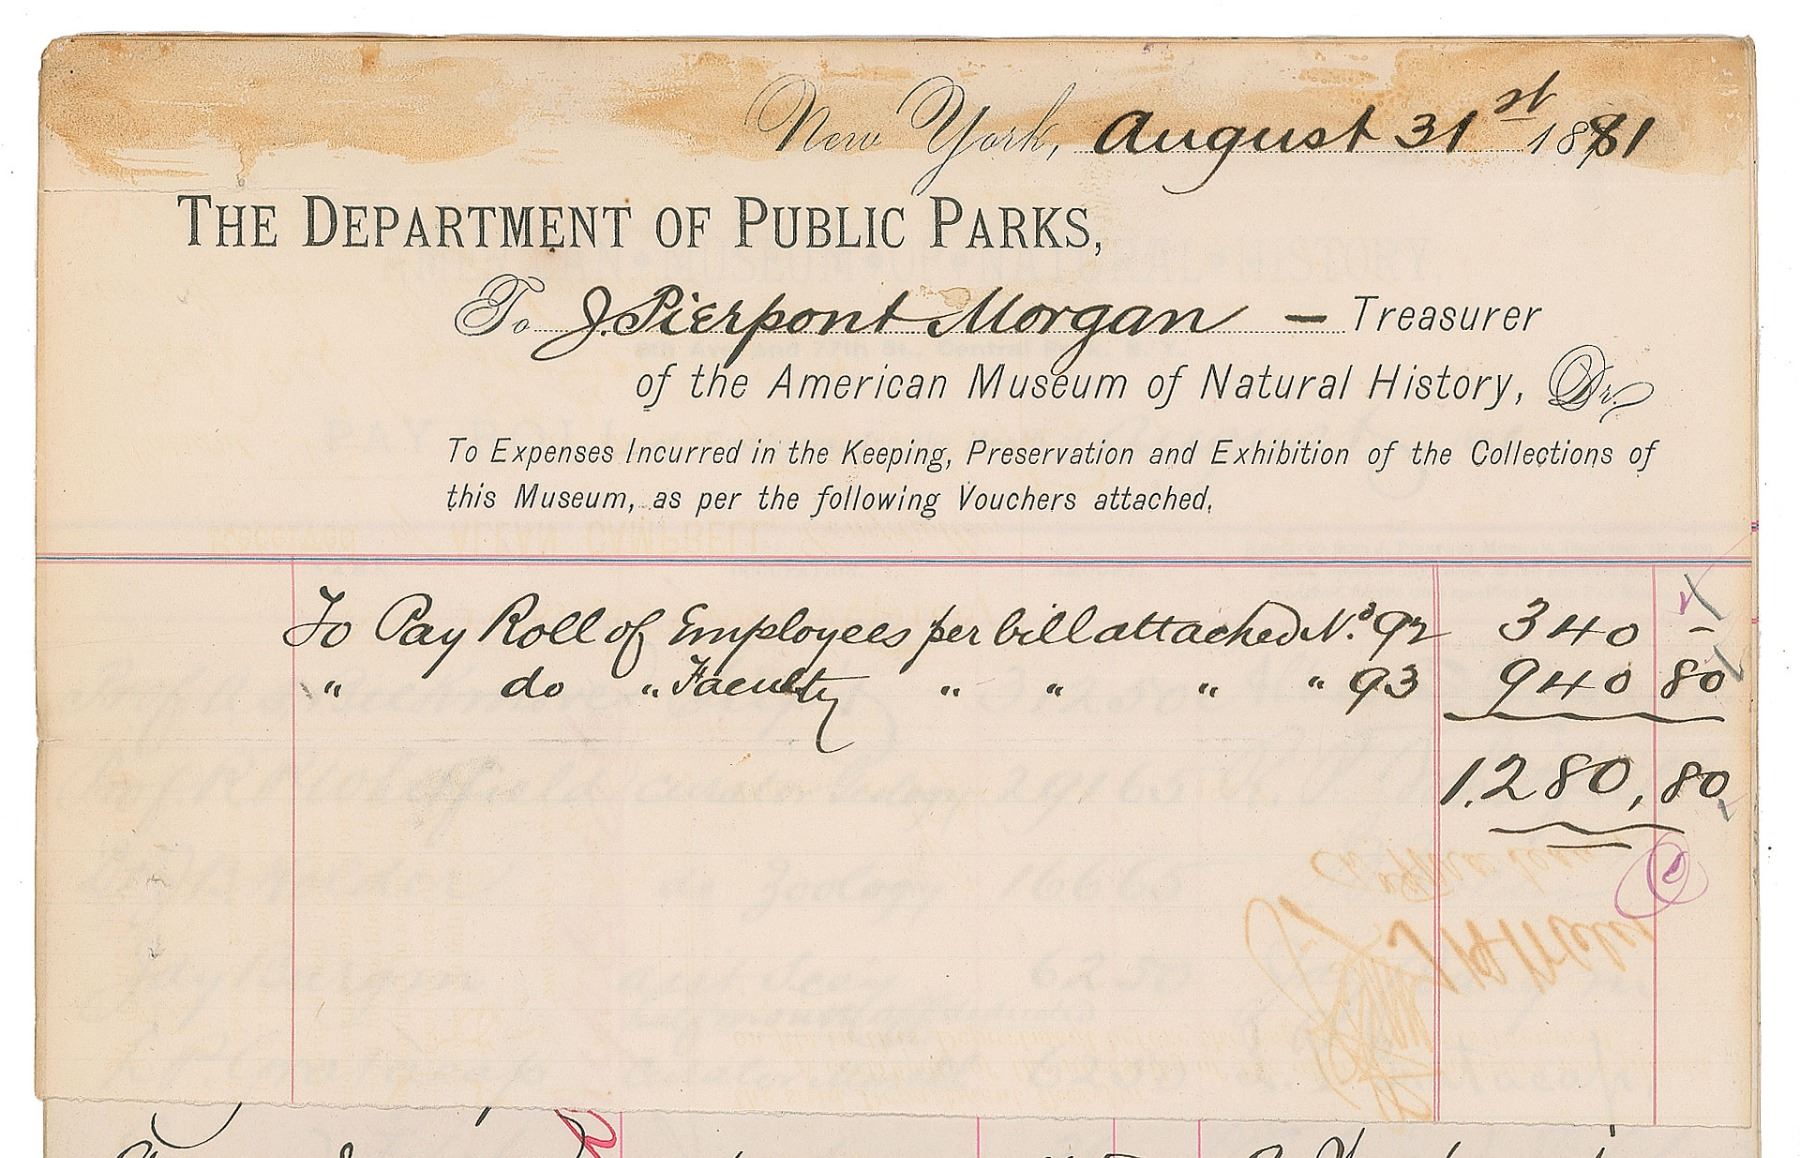 New York, August 31st 1881
THE DEPARTMENT OF PUBLIC PARKS,
To J. Pierpont Morgan — Treasurer
of the American Museum of Natural History, Dr.
To Expenses Incurred in the Keeping, Preservation and Exhibition of the Collections of
this Museum, as per the following Vouchers attached.
To Pay Roll of Employees per bill attached No. 92 340 –
" do " Faculty " " " " 93 940 80
1,280,80